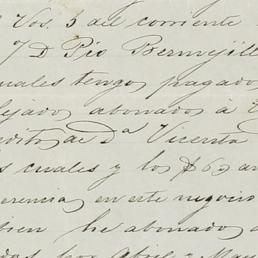 Vos. 5 del corriente
7 D Pio Bermejill
uales tengo pagado
ejado abonados á
dito de Dª Vicenta
s cuales y los $ 63 an
erencia en este negocio
bien he abonado a
das por Abril y May